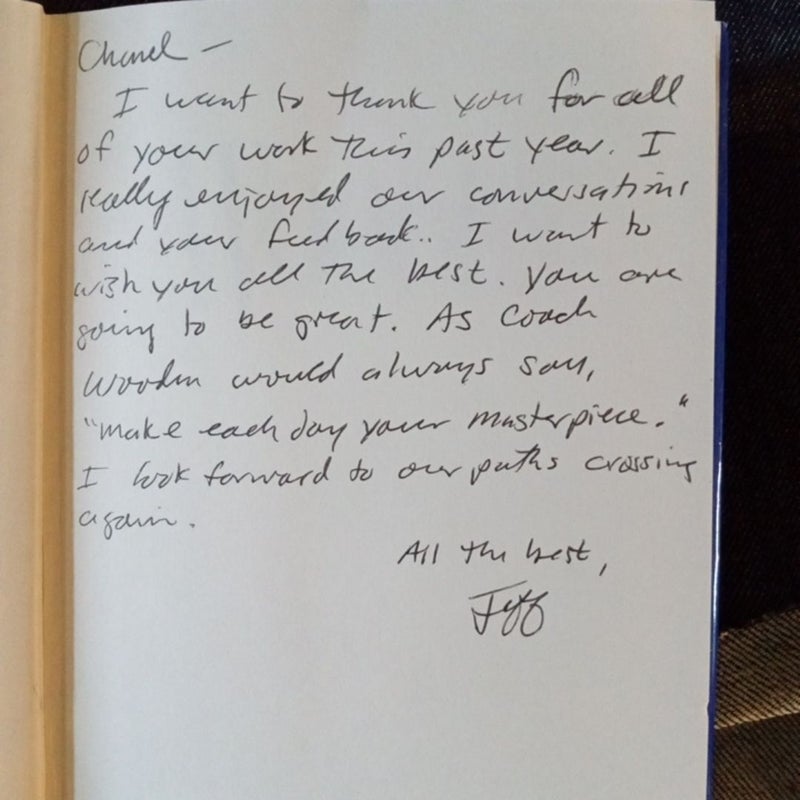 Chanel -
I want to thank you for all
of your work this past year. I
really enjoyed our conversations
and your feedback.. I want to
wish you all the best. You are
going to be great. As Coach
Wooden would always say,
"Make each day your masterpiece."
I look forward to our paths crossing
again.
All the best,
Jeff